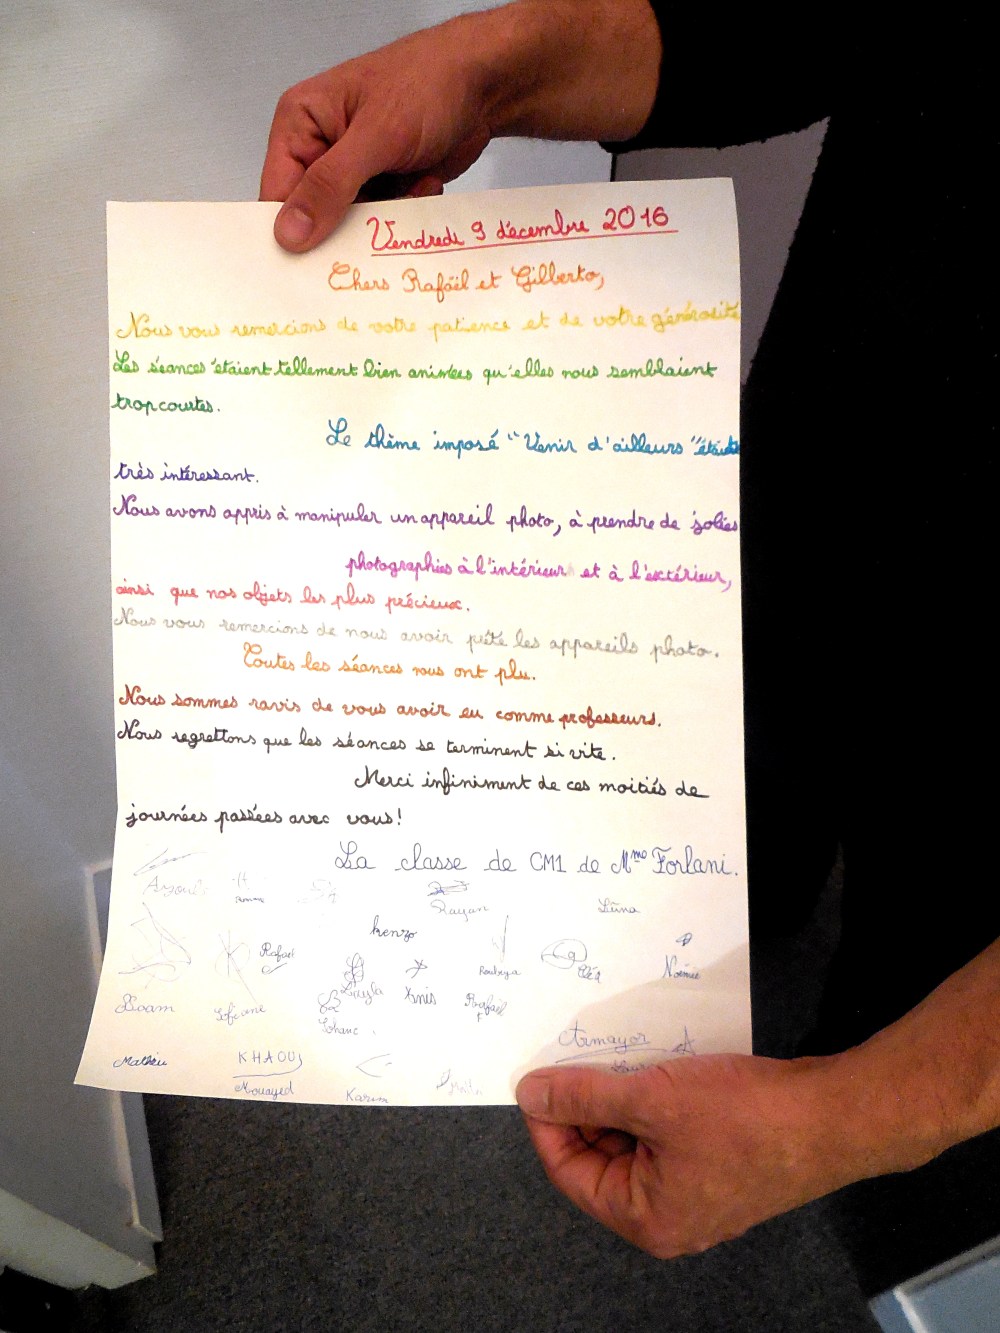 Vendredi 9 décembre 2016
Chers Rafaël et Gilberto,
Nous vous remercions de votre patience et de votre générosité
Les séances étaient tellement bien animées qu'elles nous semblaient
trop courtes.
Le thème imposé "Venir d'ailleurs" était
très intéressant.
Nous avons appris à manipuler un appareil photo, à prendre de jolies
photographies à l'intérieur et à l'extérieur,
ainsi que nos objets les plus précieux.
Nous vous remercions de nous avoir prêté les appareils photo.
Toutes les séances nous ont plu.
Nous sommes ravis de vous avoir eu comme professeurs.
Nous regrettons que les séances se terminent si vite.
Merci infiniment de ces moitiés de
journées passées avec vous!
La classe de CM1 de Mme Forlani.
Rayan Luna
Kenzo
Rafael Rouheya Cléa Noémie
Layla Anis Rafaël F
Lloam Sofiane Yohane
Armayor
Mathieu KHAOUS
Mouayed Karim